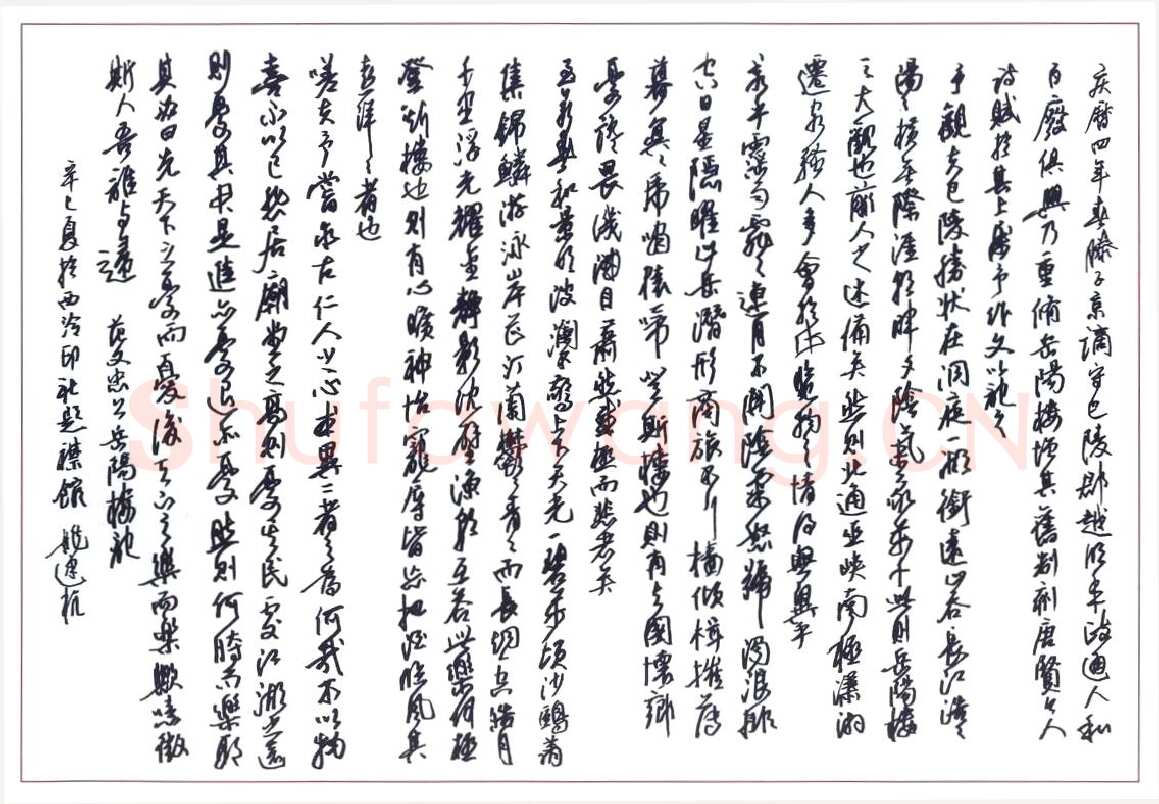 庆曆四年春滕子京謫守巴陵郡越明年政通人和
百廢俱興乃重脩岳陽樓增其舊制刻唐賢今人
詩賦於其上屬予作文以記之
予觀夫巴陵勝狀在洞庭一湖銜遠山吞長江浩々
湯々橫無際涯朝暉夕陰氣象万千此則岳陽樓
之大觀也前人之述備矣然則北通巫峽南極瀟湘
遷客騷人多會於此覽物之情得無異乎
若夫霪雨霏々連月不開陰風怒號濁浪排
空日星隱曜山岳潛形商旅不行檣傾楫摧薄
暮冥々虎嘯猿啼登斯樓也則有去國懷鄉
憂讒畏譏滿目蕭然感極而悲者矣
至若春和景明波瀾不驚上下天光一碧万頃沙鷗翔
集錦鱗游泳岸芷汀蘭鬱々青々而長煙一空皓月
千里浮光耀金靜影沈璧漁歌互答此樂何極
登斯樓也則有心曠神怡寵辱皆忘把酒臨風其
喜洋々者也
嗟夫予嘗求古仁人之心或異二者之為何哉不以物
喜不以己悲居廟堂之高則憂其民處江湖之遠
則憂其君是進亦憂退亦憂然則何時而樂耶
其必曰先天下之憂而憂後天下之樂而樂歟噫微
斯人吾誰與歸 范文忠公岳陽樓記
辛巳夏於西泠印社題襟館 姚建杭
Shufawang.CN